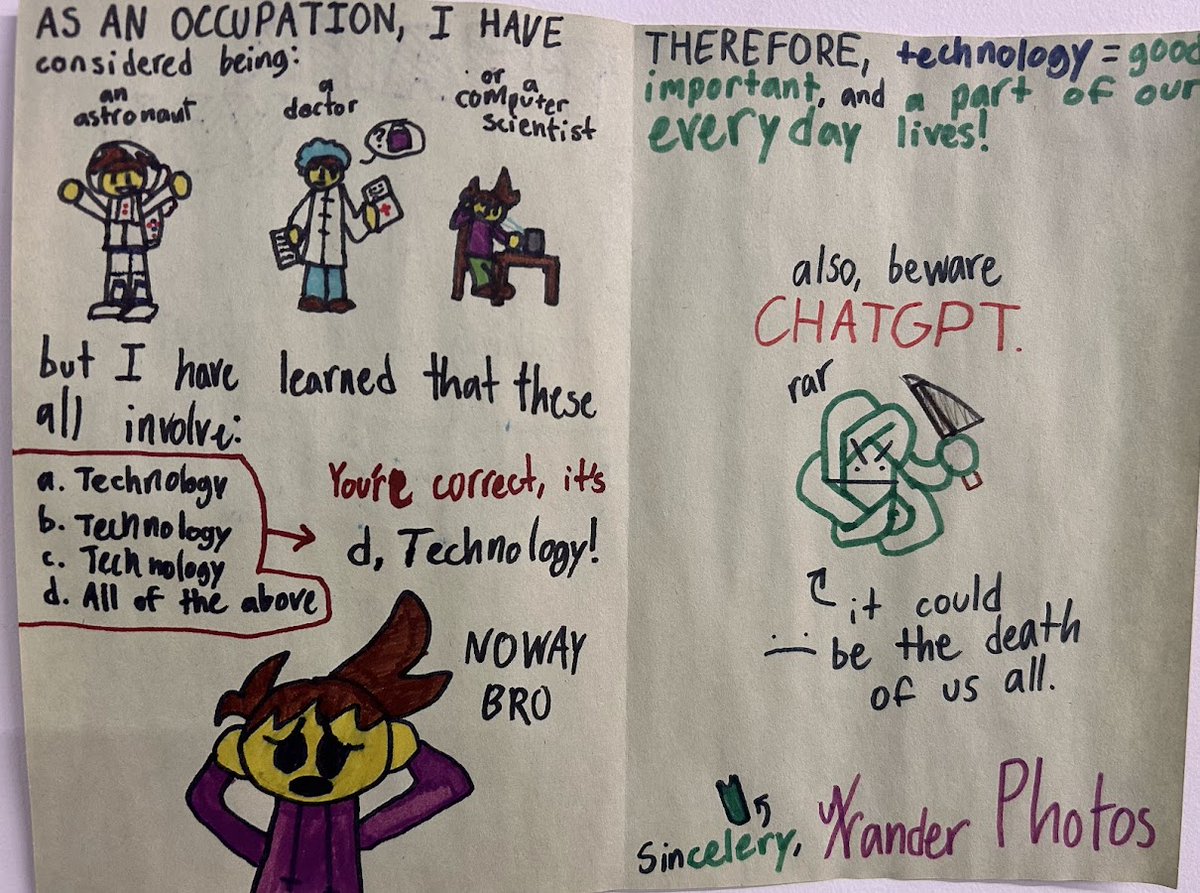 AS AN OCCUPATION, I HAVE
considered being:
an
astronaut
a
doctor
or a
computer
scientist
?
but I have learned that these
all involve:
a. Technology
b. Technology
c. Technology
d. All of the above
You're correct, it's
d, Technology!
NO WAY
BRO
THEREFORE, technology = good
important, and a part of our
everyday lives!
also, beware
CHATGPT.
rar
it could
be the death
of us all.
Sincelery, Xander Photos